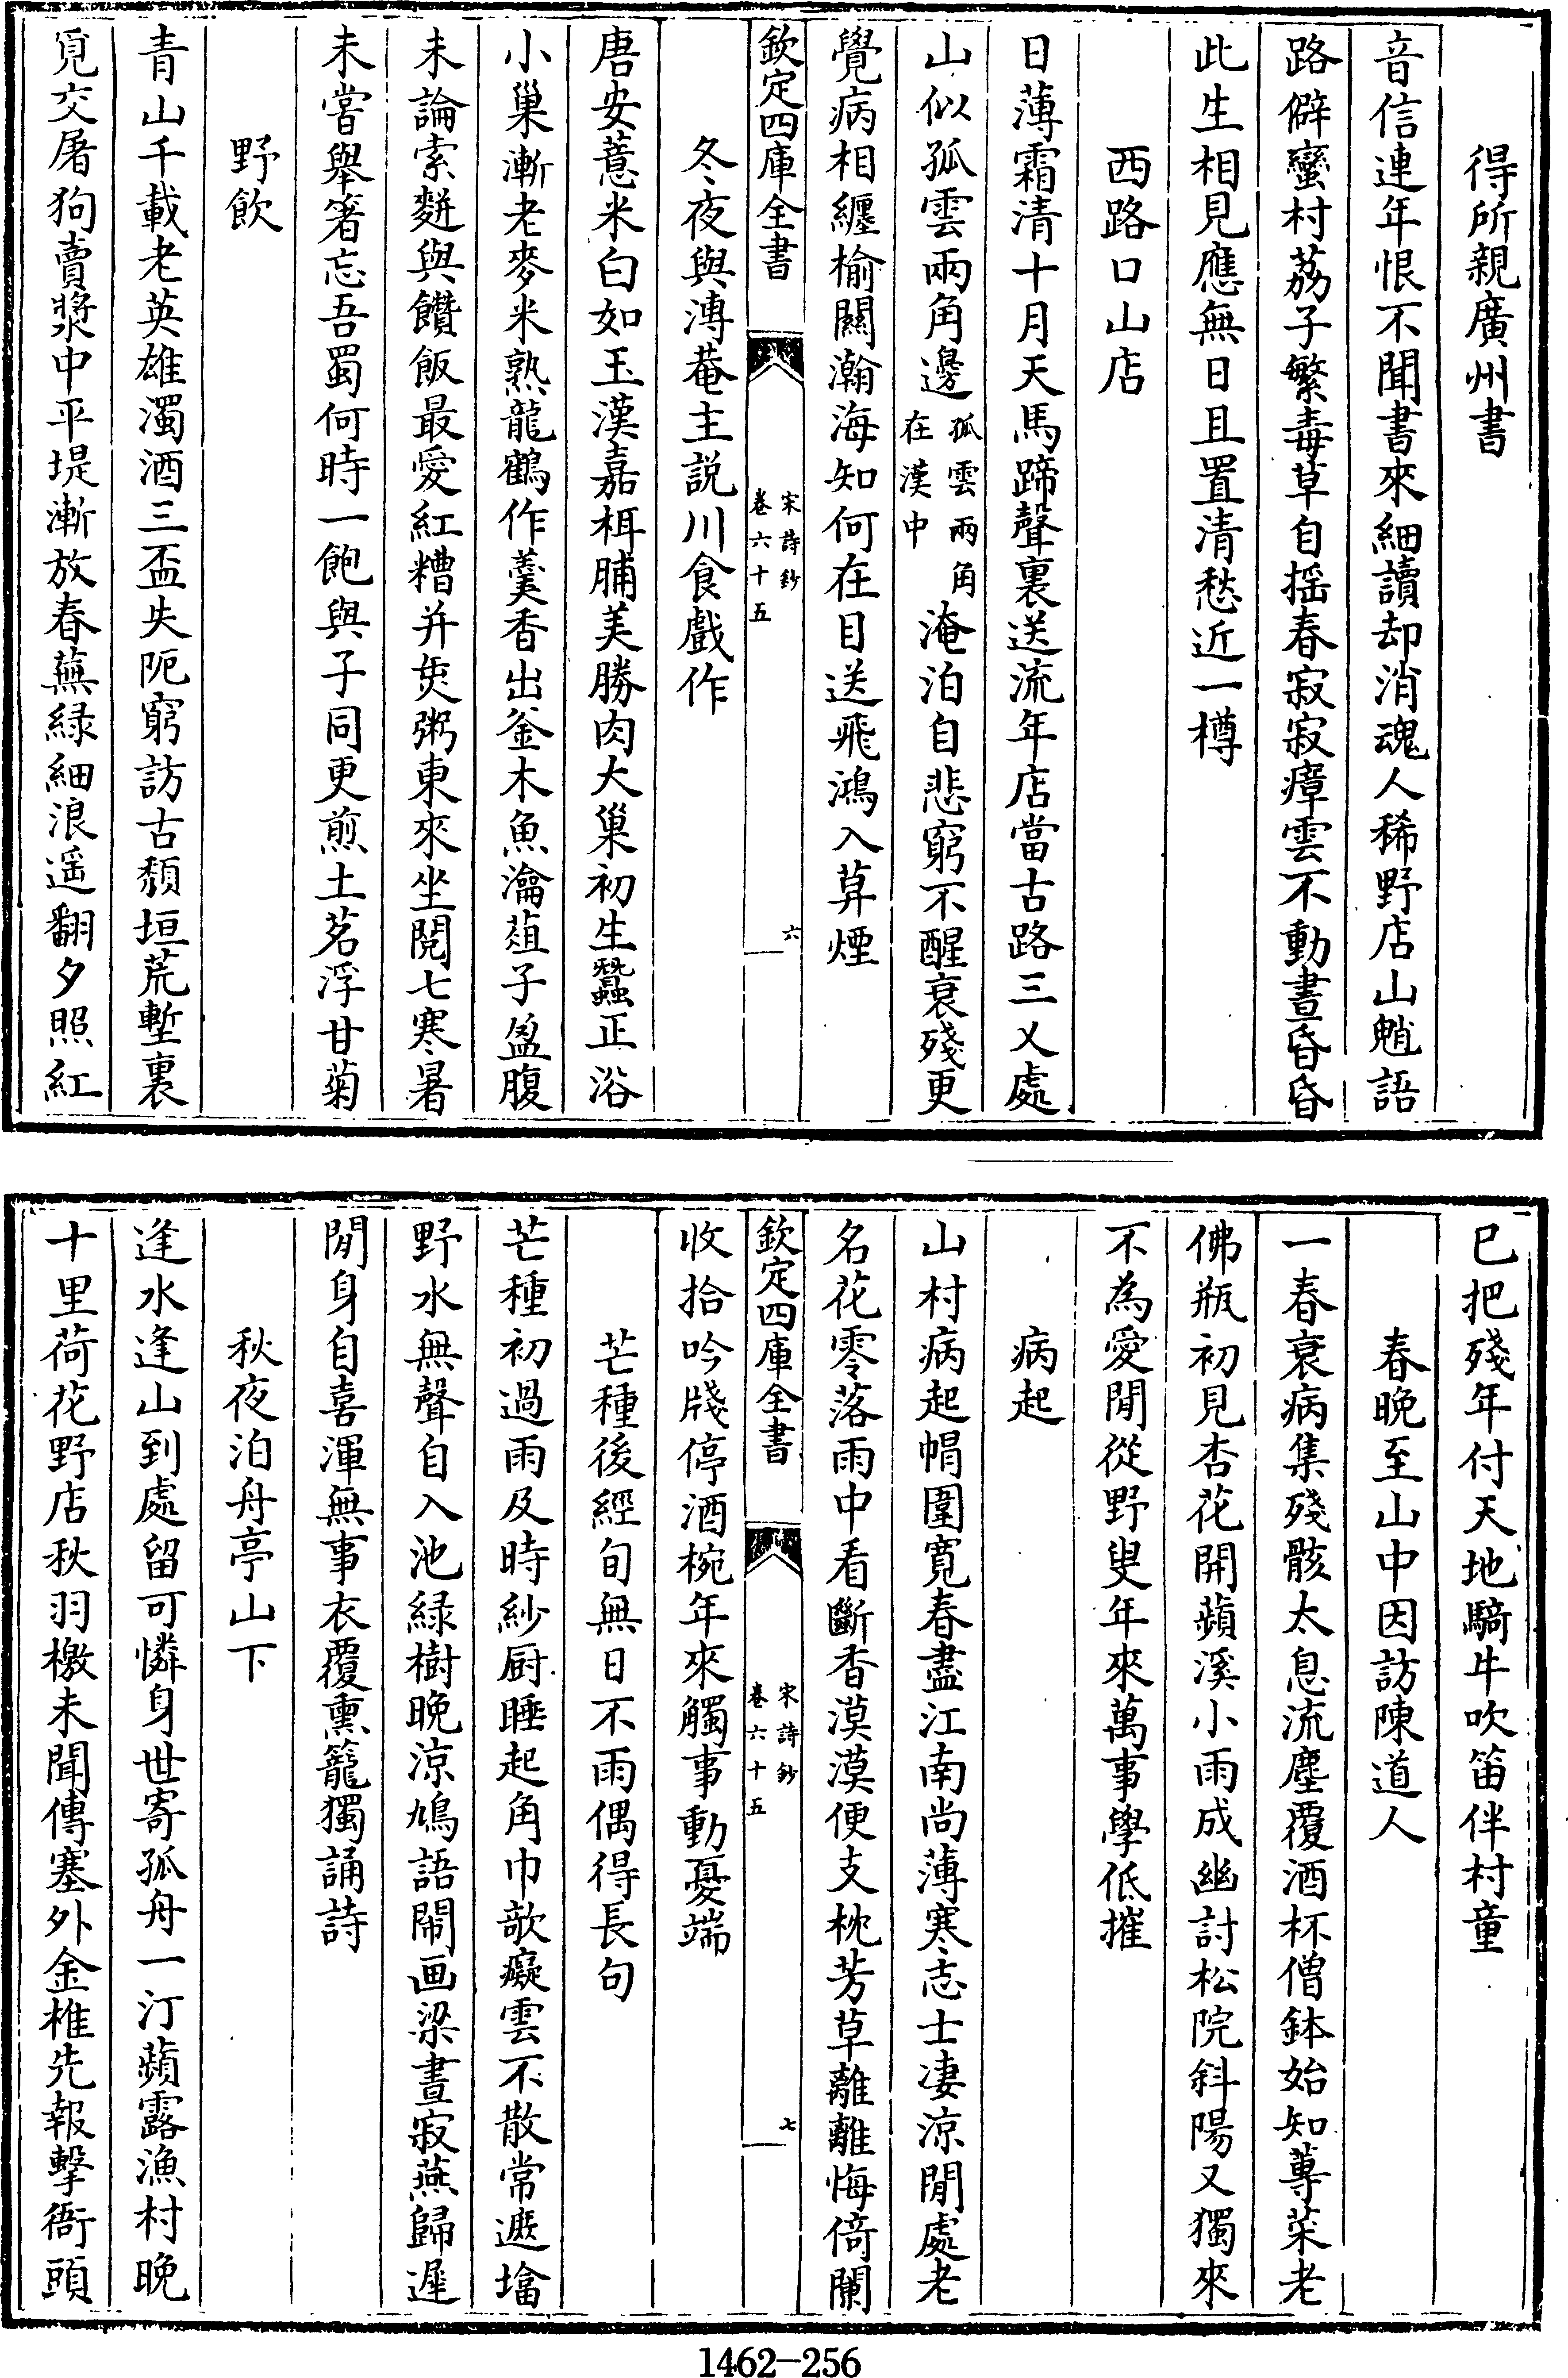 得所親廣州書
音信連年恨不聞書來細讀却消魂人稀野店山魈語
路僻蠻村荔子繁毒草自摇春寂寂瘴雲不動晝昏昏
此生相見應無日且置清愁近一樽
西路口山店
日薄霜清十月天馬蹄聲裏送流年店當古路三乂處
山似孤雲兩角邊孤雲兩角在漢中淹泊自悲窮不醒衰殘更
覺病相纏榆關瀚海知何在目送飛鴻入莫煙
欽定四庫全書
宋詩鈔
卷六十五
六
冬夜與溥菴主説川食戲作
唐安薏米白如玉漢嘉栮脯美勝肉大巢初生蠶正浴
小巢漸老麥米熟龍鶴作羹香出釜木魚瀹葅子盈腹
未論索麪與饡飯最愛紅糟并炰粥東來坐閱七寒暑
未嘗舉箸忘吾蜀何時一飽與子同更煎土茗浮甘菊
野飲
青山千載老英雄濁酒三盃失阨窮訪古頹垣荒塹裏
覓交屠狗賣漿中平堤漸放春蕪緑細浪遥翻夕照紅
已把殘年付天地騎牛吹笛伴村童
春晚至山中因訪陳道人
一春衰病集殘骸太息流塵覆酒杯僧鉢始知蓴菜老
佛瓶初見杏花開蘋溪小雨成幽討松院斜陽又獨來
不為愛閒從野叟年來萬事學低摧
病起
山村病起帽圍寬春盡江南尚薄寒志士凄涼閒處老
名花零落雨中看斷香漠漠便支枕芳草離離悔倚闌
欽定四庫全書
宋詩鈔
卷六十五
七
收拾吟牋停酒椀年來觸事動憂端
芒種後經旬無日不雨偶得長句
芒種初過雨及時紗厨睡起角巾欹癡雲不散常遮塔
野水無聲自入池緑樹晚涼鳩語鬧画梁晝寂燕歸遲
閒身自喜渾無事衣覆熏籠獨誦詩
秋夜泊舟亭山下
逢水逢山到處留可憐身世寄孤舟一汀蘋露漁村晚
十里荷花野店秋羽檄未聞傳塞外金椎先報擊衙頭
1462-256